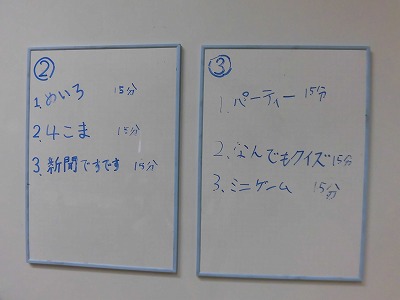 ②
1. めいろ 15分
2. 4こま 15分
3. 新聞ですです 15分
③
1. パーティー 15分
2. なんでもクイズ 15分
3. ミニゲーム 15分